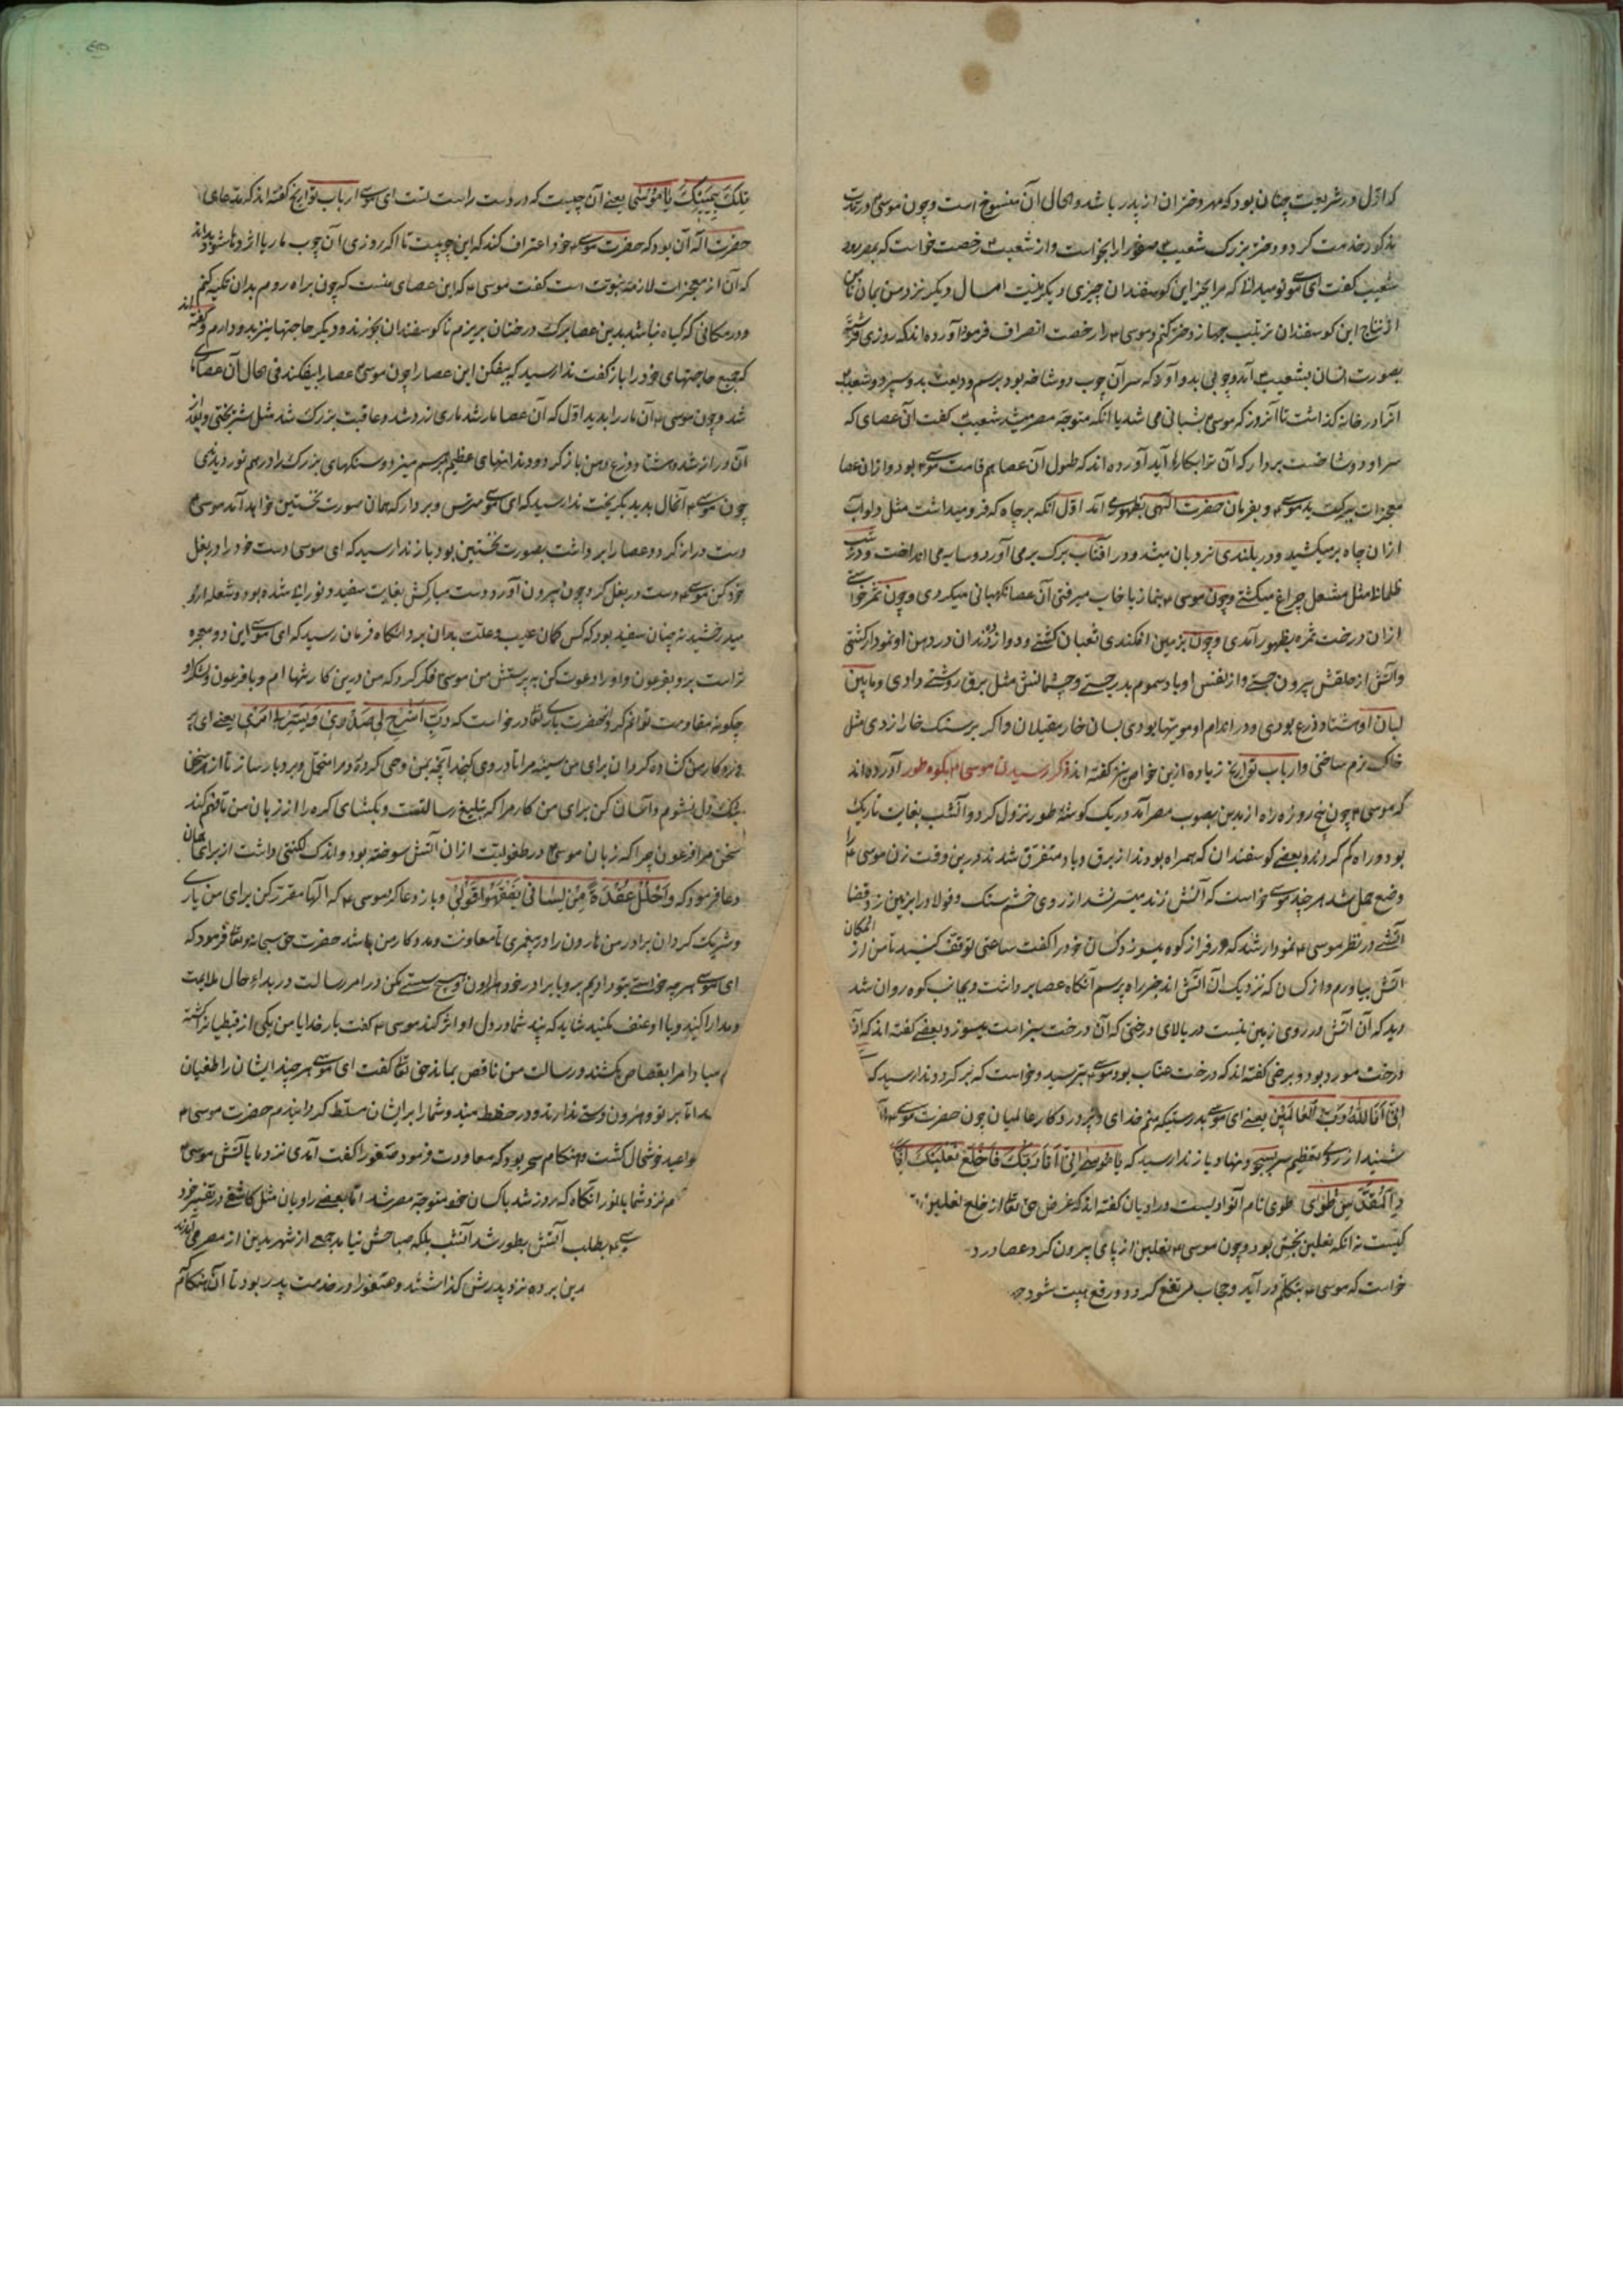 که اوّل در شریعت چنان بود که مهر دختران از پدر باشد و الحال آن منسوخ است و چون موسی ۴ در مدت
مذکور خدمت کرد و دختر بزرک شعیب ۴ صفورا را بخواست و از شعیب ۴ رخصت خواست که بمصر رود
شعیب گفت ای موسی تو میدانی که مرا بجز این کوسفندان چیزی دیکر نیست امسال دیکر نزد من بمان تا من
از نتاج این کوسفندان ترتیب جهاز دختر کنم و موسی ۴ را رخصت انصراف فرمود آورده اند که روزی فرشتهٔ
بصورت انسان بشعیب ۴ آمد و چوبی بدو آورد که سر آن چوب دو شاخه بود و برسم ودیعت بدو سپرد و شعیب ۴
آنرا در خانه کذاشت تا آنروز که موسی ۴ بشبانی می شد یا آنکه متوجه مصر میشد شعیب ۴ کفت آن عصای که
سر او دو شاخست بردار که آن ترا بکار آید آورده اند که طول آن عصا هم قامت موسی ۴ بود و از آن عصا
معجزات ببرکت ید موسی ۴ و بفرمان حضرت الهی بظهور می آمد اوّل آنکه بر چاه که فرو میداشت مثل دلو آب
از ان چاه بر میکشید و در بلندی نردبان میشد و در آفتاب برک بر می آورد و سایه می انداخت و در شب
ظلمانی مثل مشعل چراغ میکشتی و چون موسی ۴ بنماز یا خاب میرفتی آن عصا نکهبانی میکردی و چون ثمر خواستی
ازان درخت ثمره بظهور آمدی و چون بزمین افکندی ثعبان کشتی و دوازده دندان در دهن او نمودار کشتی
و آتش از حلقش بیرون جستی و از نفس او باد سموم بدر جستی و چشمانش مثل برق روشنی دادی و مابین
لبان او هشتاد ذرع بودی و در اندام او مویتها بودی بسان خار مغیلان و اکر بر سنک خارا زدی مثل
خاک نرم ساختی و ارباب تواریخ زیاده ازین خواص نیز کفته اند ذکر رسیدن موسی ۴ بکوه طور آورده اند
که موسی ۴ چون پنج روزه راه از مدین بصوب مصر آمد در یک کوشهٔ طور نزول کرد و آنشب بغایت تاریک
بود و راه کم کردند و بعضی کوسفندان که همراه بودند از برق و باد متفرق شدند درین وقت زن موسی ۴ را
وضع حمل شد هر چند موسی خواست که آتش زند میسر نشد از روی خشم سنک و فولاد را بر زمین زد قضا
آتشی در نظر موسی ۴ نمودار شد که بر فراز کوه میسوزد کسان خود را کفت ساعتی توقف کنید تا من از المکان
آتش بیاورم و از کسان که نزدیک آن آتش اند خبر راه پرسم آنکاه عصا برداشت و بجانب کوه روان شد
دید که آن آتش در روی زمین نیست در بالای درختی که آن درخت سبز است میسوزد و بعضی کفته اند که آن
درخت مورد بود و برخی کفته اند که درخت عناب بود موسی ۴ بترسید و خواست که برکردد ندا رسید که
اِنّی اَنَا اللهُ رَبُّ الْعٰالَمینَ یعنی ای موسی بدرستیکه منم خدای و پروردکار عالمیان چون حضرت موسی ۴
شنید از روی تعظیم سر بسجود نهاد و باز ندا رسید که یا موسی اِنّی اَنَا رَبُّکَ فَاخْلَعْ نَعْلَیْکَ اِنَّکَ
الْمُقَدَّسِ طُوًی طوی نام آن وادیست و راویان کفته اند که غرض حق تعالی از خلع نعلین
نیست نه آنکه نعلین نجس بود و چون موسی ۴ نعلین از پای بیرون کرد و عصا در د
خواست که موسی ۴ بتکلّم در آید و حجاب مرتفع کردد و رفع هیبت شود
تِلْکَ بِیَمینِکَ یا مُوسٰی یعنی آن چیست که در دست راست تست ای موسی ارباب تواریخ کفته اند که مدعای
حضرت اله آن بود که حضرت موسی ۴ خود اعتراف کند که این چوبست تا اکر روزی آن چوب مار یا اژدها شود بداند
که آن از معجزات لازمهٔ نبوّت است کفت موسی ۴ که این عصای منست که چون براه روم بدان تکیه کنم
و در مکانی که کیاه نباشد بدین عصا برک درختان بریزم تا کوسفندان بخورند و دیکر حاجتها نیز بدو دارم و کفته اند
که جمیع حاجتهای خود را باز کفت ندا رسید که بیفکن این عصا را چون موسی ۴ عصا را بیفکند فی الحال آن عصا ماری
شد و چون موسی ۴ آن مار را بدید اوّل که آن عصا مار شد ماری زرد شد و عاقبت بزرک شد مثل شتر بختی و بعد از
آن دراز شد هشتاد ذرع و دهن باز کرد و دندانهای عظیم بر هم میزد و سنکهای بزرک را در هم نوردیدی
چون موسی ۴ آنحال بدید بکریخت ندا رسید که ای موسی مترس و بردار که همان صورت نخستین خواهد آمد موسی ۴
دست دراز کرد و عصا را برداشت بصورت نخستین بود باز ندا رسید که ای موسی دست خود را در بغل
خود کن موسی ۴ دست در بغل کرد چون بیرون آورد دست مبارکش بغایت سفید و نورانی شده بود و شعله از او
میدرخشید نه چنان سفید بود که کس کمان عیب و علت بدان برد آنکاه فرمان رسید که ای موسی این دو معجزه
تراست برو بفرعون و او را دعوت کن به پرستش من موسی ۴ فکر کرد که من درین کار تنها ام و با فرعون و لشکر او
چکونه مقاومت توانم کرد از حضرت باری تعالی درخواست که رَبِّ اشْرَحْ لی صَدْری وَ یَسِّرْ لی اَمْری یعنی ای
پروردکار من کشاده کردان برای من سینه مرا تا در وی کنجد آنچه بمن وحی کردهٔ و مرا متحمل و بردبار ساز تا از سخن
تنک دل نشوم و آسان کن برای من کار مرا که تبلیغ رسالتست و بکشای کره را از زبان من تا فهم کند
سخن مرا فرعون چرا که زبان موسی ۴ در طفولیت ازان آتش سوخته بود و اندک لکنتی داشت از برای آن
دعا فرمود که وَ احْلُلْ عُقْدَةً مِنْ لِسٰانی یَفْقَهُوا قَوْلی و باز دعا کرد موسی ۴ که الها مقرر کن برای من یار
و شریک کردان برادر من هارون را در پیغمبری تا معاونت و مددکار من باشد حضرت حق سبحانه و تعالی فرمود که
ای موسی هر چه خواستی بتو دادیم برو با برادر خود هارون و هیچ سستی مکن در امر رسالت در بداء حال ملایمت
و مدارا کنید و با او عنف مکنید شاید که پند شما در دل او اثر کند موسی ۴ کفت بار خدایا من یکی از قبطیانرا کشته
مبادا مرا بقصاص بکشند و رسالت من ناقص بماند حق تعالی کفت ای موسی هر چند ایشان را طغیان
اما بر تو و هرون دستی ندارند و در حفظ منید و شما را بر ایشان مسلّط کردانیدم حضرت موسی ۴
مواعید خوشحال کشت و هنکام سحر بود که معاودت فرمود صفورا کفت آمدی نزد ما با آتش موسی ۴
م نزد شما با نور آنکاه که روز شد با کسان خود متوجه مصر شد اما بعضی راویان مثل کاشفی در تفسیر خود
بطلب آتش بطور شد آنشب بلکه صباحش نیامد جمعی از شهر مدین از مصر می آمدند
برده نزد پدرش کذاشتند و صفورا در خدمت پدر بود تا آن هنکام